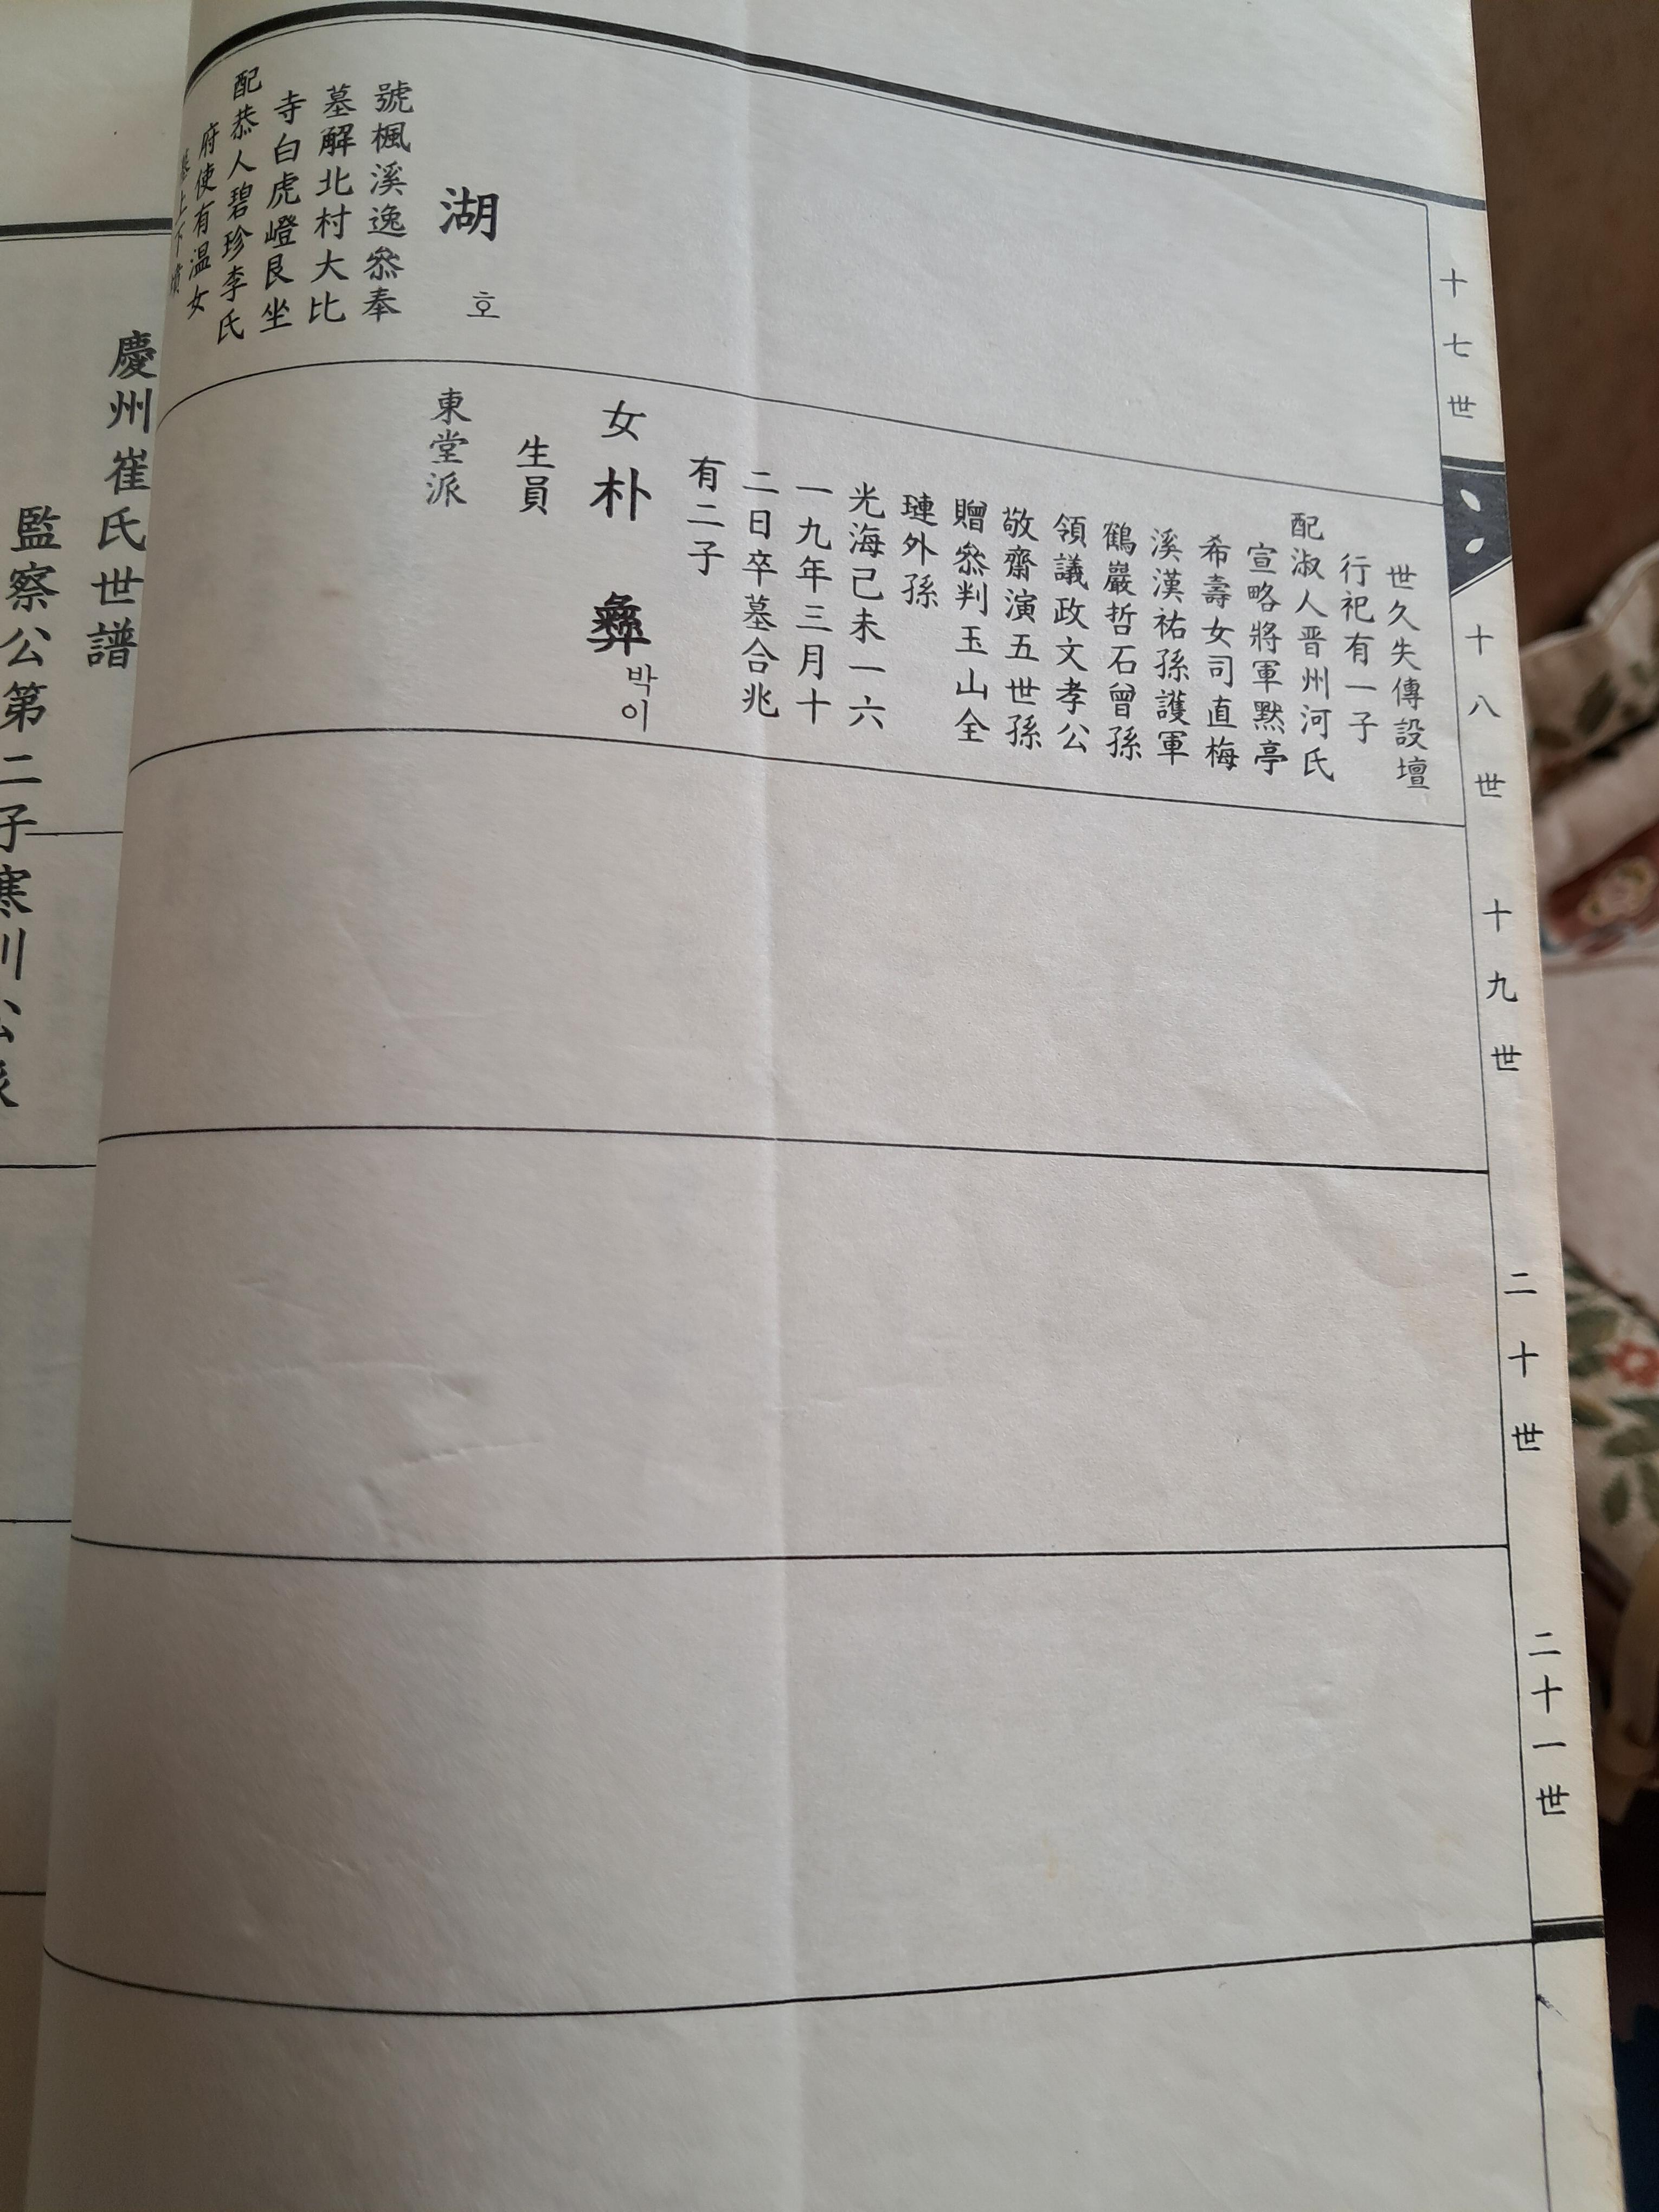 十七世
十八世
十九世
二十世
二十一世
湖
호
號楓溪逸叅奉
墓解北村大比
寺白虎嶝艮坐
配恭人碧珍李氏
府使有温女
世久失傳設壇
行祀有一子
配淑人晋州河氏
宣略將軍默亭
希壽女司直梅
溪漢祐孫護軍
鶴巖哲石曾孫
領議政文孝公
敬齋演五世孫
贈叅判玉山全
璉外孫
光海己未一六
一九年三月十
二日卒墓合兆
有二子
女朴彝
박이
生員
東堂派
慶州崔氏世譜
監察公第二子寒川公派